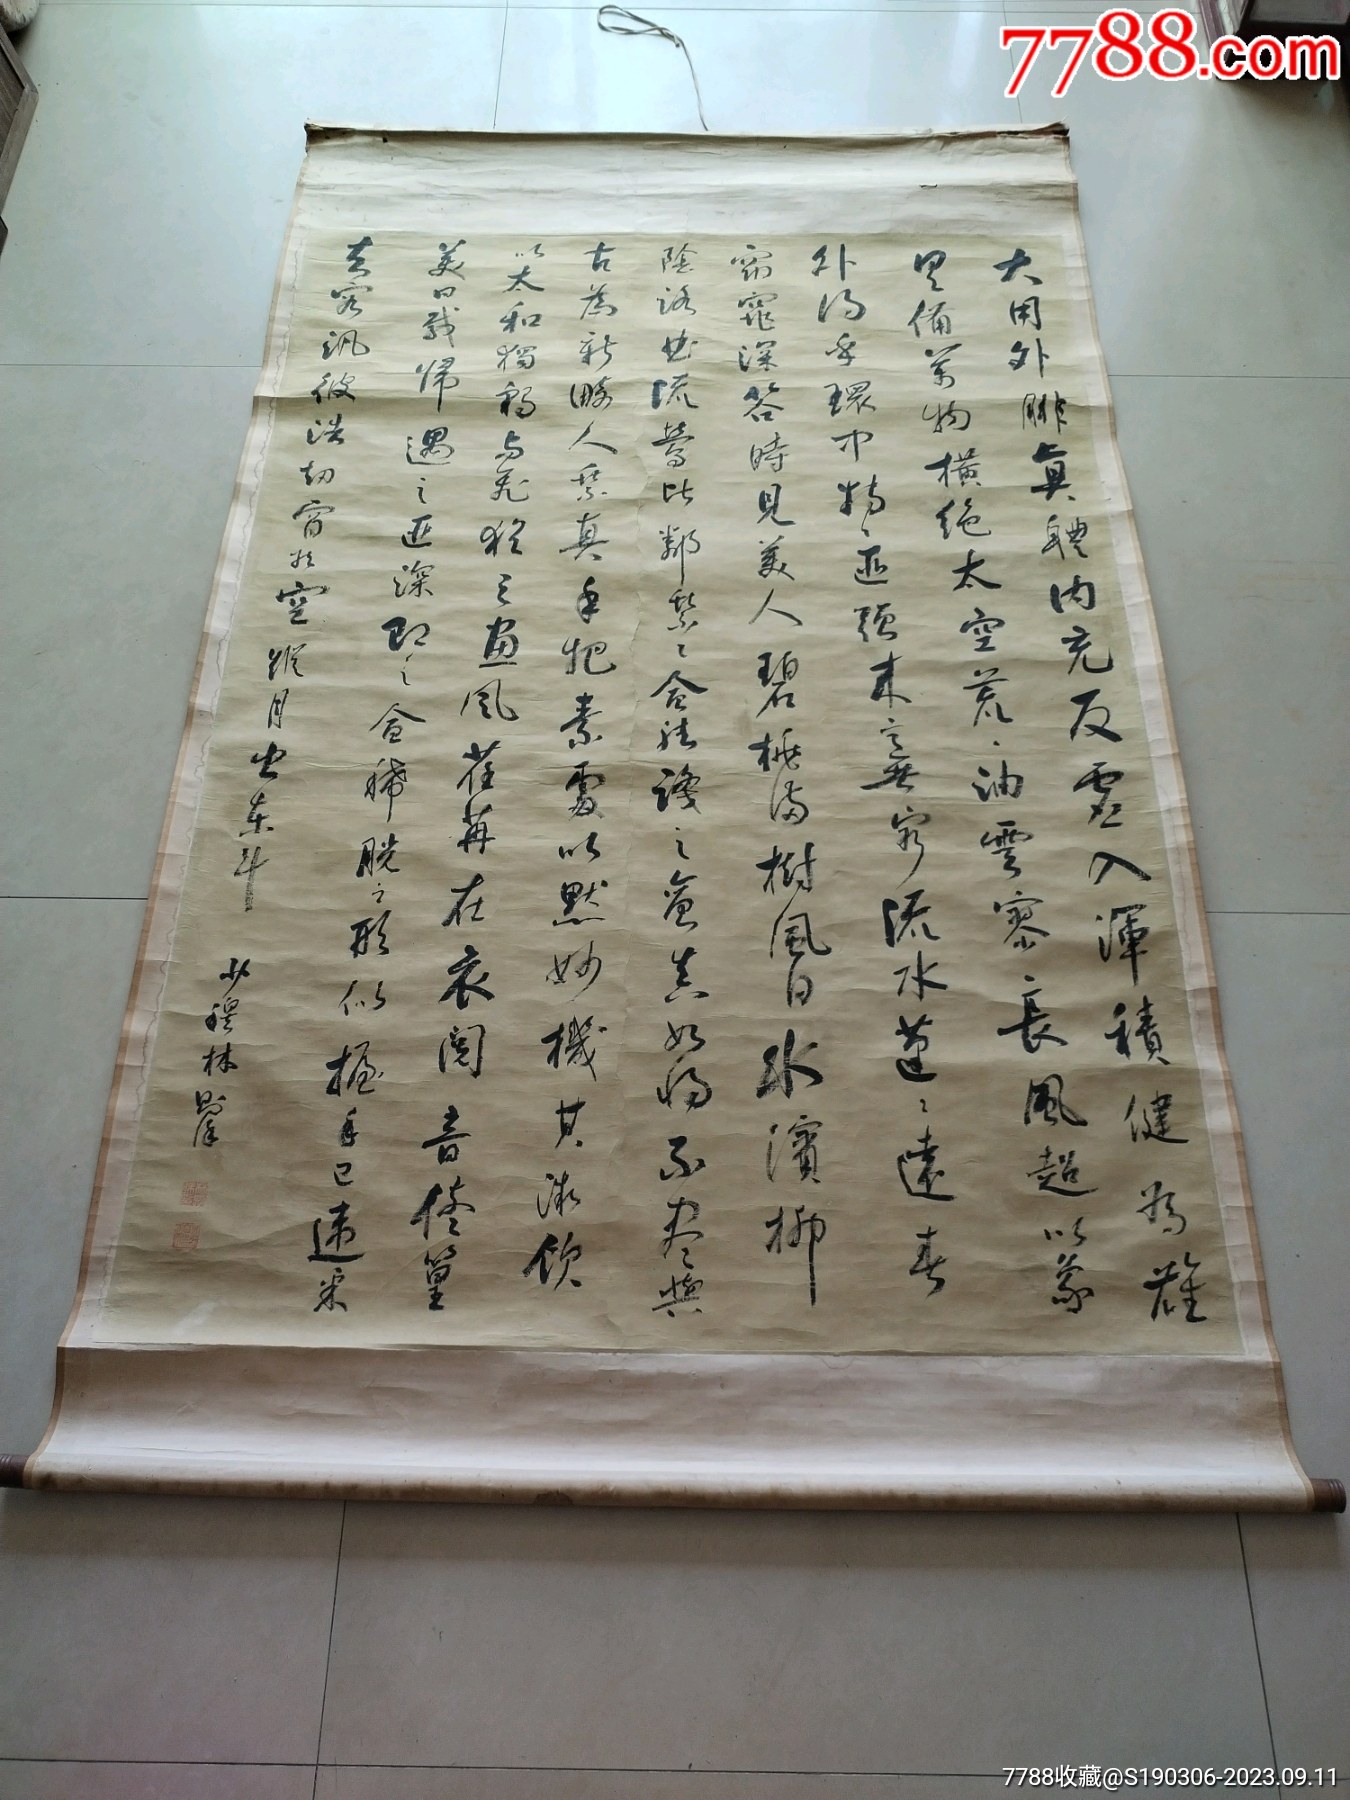 大用外腓真體内充反虛入渾積健為雄
具備萬物橫絕太空荒〻油雲寥〻長風超以象
外得乎環中持〻匪强来之無窮流水蓬〻遠春
窈窕深谷時見美人碧桃滿樹風日水濱柳
陰路曲流鶯比鄰乘〻愈往識之愈真如將不盡與
古為新畸人乘真手把素處以默妙機其微飲
以太和獨鶴与飛猶之惠風荏苒在衣閱音修篁
美曰載歸遇之匪深即之愈稀脱之形似握手已違采
真容汎彼浩劫窅然空蹤月出東斗
少穆林則徐
7788.com
7788收藏@S190306-2023.09.11